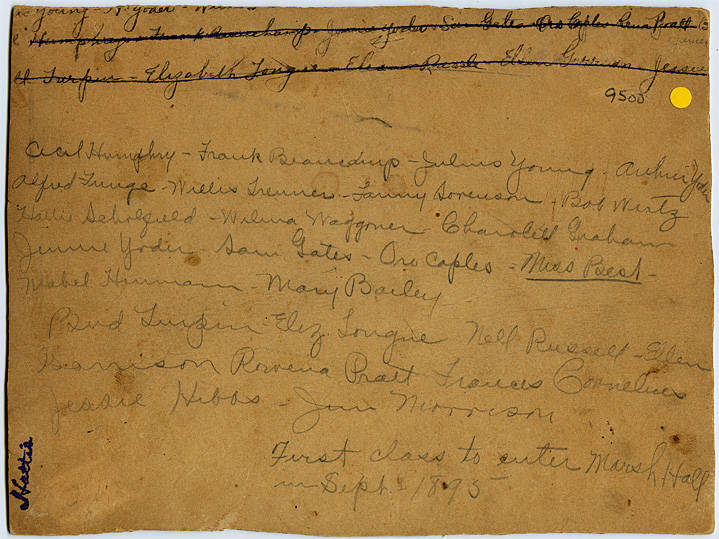 Young - A Yoder -
Humphry - Frank Beauchamp - Jimmie Yoder - Sam Gates - Oro Caples Rena Pratt
Turpin - Elizabeth Tongue - Ellen Jessie
9500
Cecil Humphry - Frank Beauchamp - Julius Young - Arthur Yoder
Alfred Tunge - Willis Trenner - Fanny Sorenson - Bob Wirtz
Hattie Scholfield - Wilma Waggoner - Charolett Graham
Jimmie Yoder - Sam Gates - Oro Caples - Miss Best -
Mabel Hinmann - Mary Bailey
Bud Turpin - Eliz Tongue Nell Russell - Ellen
Garrison Rowena Pratt Frances Cornelius
Jessie Hibbs - Jim Morrison
First class to enter Marsh Hall
in Sept - 1895
Hattie